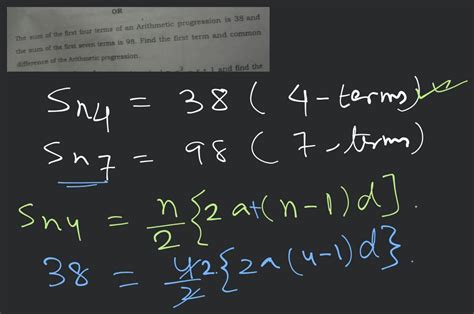 OR
The sum of the first four terms of an Arithmetic progression is 38 and
the sum of the first seven terms is 98. Find the first term and common
difference of the Arithmetic progression.
+ 1 and find the
Sn4 = 38 ( 4-terms)
Sn7 = 98 ( 7-terms)
Sn4 = n/2 {2a+(n-1)d}.
38 = 4/2 2{2a(4-1)d}.